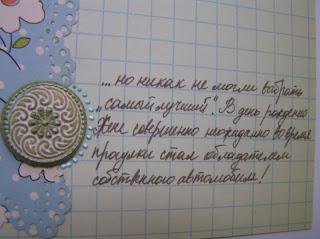 ... но никак не могли выбрать
„самый лучший". В день рождения
Женя совершенно неожиданно во время
прогулки стал обладателем
собственного автомобиля!